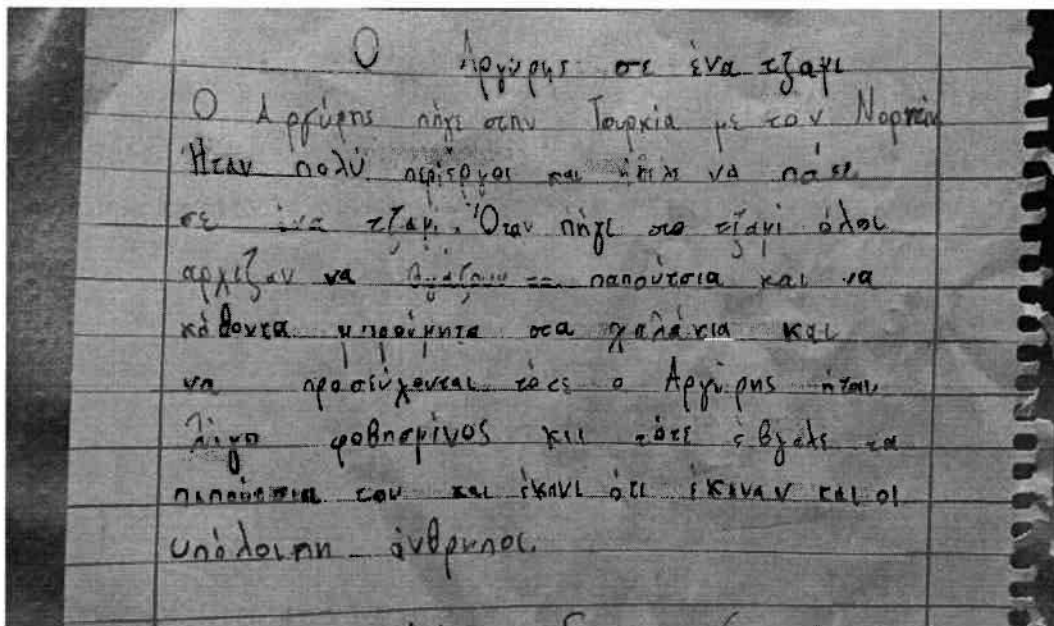 Ο Αργύρης σε ένα τζαμι
Ο Αργύρης πήγε στην Τουρκία με τον
Ήταν πολύ περίεργος και ήθελε να πάει
σε ένα τζαμί. Όταν πήγε στο τζαμί όλοι
αρχίζαν να βγάζουν τα παπούτσια και να
κάθοντα μπρούμητα στα χαλάκια και
να προσεύχονται τότε ο Αργύρης ήταν
λίγο φοβησμένος και τότε έβγαλε τα
παπούτσια του και έκανε ότι έκαναν και οι
υπόλοιπη άνθρωποι.